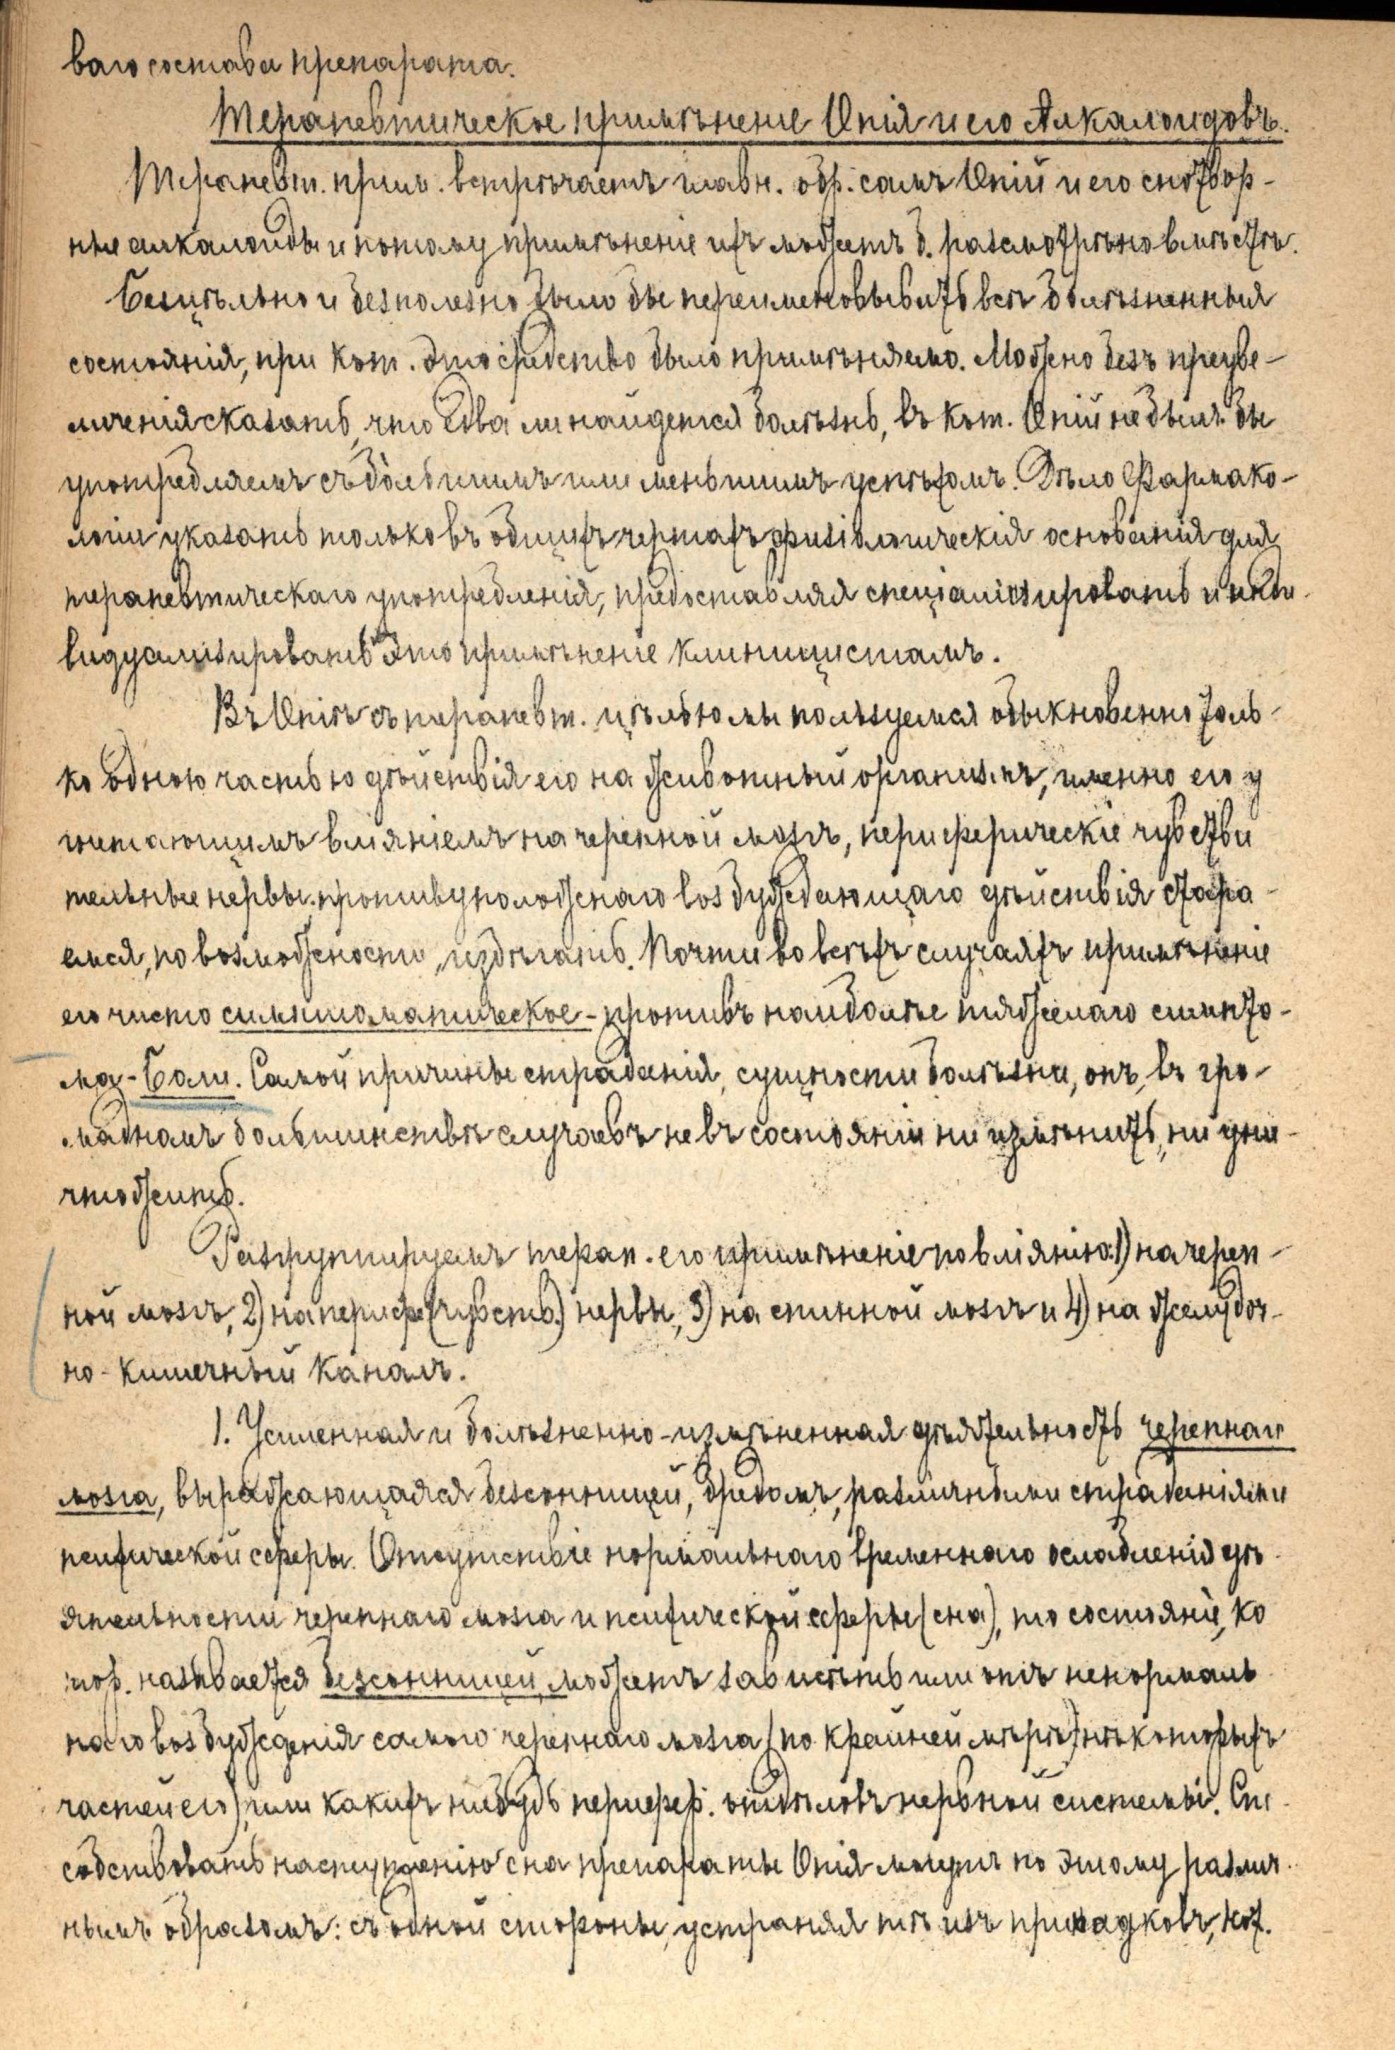 ваго состава препарата.
Терапевтическое примѣненіе Опія и его Алкалоидовъ.
Терапевт. прим. встрѣчаетъ главн. обр. самъ Опій и его снотвор-
ные алкалоиды и потому примѣненіе ихъ можетъ б. разсмотрѣно вмѣстѣ.
Безцѣльно и безполезно было бы переименовывать всѣ болѣзненныя
состоянія, при кот. это средство было примѣняемо. Можно безъ преуве-
личенія сказать, что едва ли найдется болѣзнь, въ кот. Опій не былъ бы
употребляемъ съ большимъ или меньшимъ успѣхомъ. Дѣло Фармако-
логіи указать только въ общихъ чертахъ физіологическія основанія для
терапевтическаго употребленія, предоставляя спеціализировать и инди-
видуализировать это примѣненіе клиницистамъ.
Въ Опіѣ съ терапевт. цѣлью мы пользуемся обыкновенно толь-
ко одною частью дѣйствія его на животный организмъ, именно его у
гнетающимъ вліяніемъ на черепной мозгъ, периферическіе чувстви
тельные нервы. противуположнаго возбуждающаго дѣйствія стара-
емся, по возможности, избѣгать. Почти во всѣхъ случаяхъ примѣненіе
его чисто симптоматическое - противъ наиболѣе тяжелаго симпто-
ма - Боли. Самой причины страданія, сущности болѣзни, онъ, въ гро-
мадномъ большинствѣ случаевъ не въ состояніи ни измѣнить, ни уни-
чтожить.
Разгруппируемъ терап. его примѣненіе по вліянію: 1) на череп-
ной мозгъ, 2) на периф. (чувств.) нервы, 3) на спинной мозгъ и 4) на желудоч-
но-кишечный каналъ.
1. Усиленная и болѣзненно-измѣненная дѣятельность черепнаго
мозга, выражающаяся безсонницей, бредомъ, различными страданіями
психической сферы. Отсутствіе нормальнаго временнаго ослабленія дѣ-
ятельности черепнаго мозга и психической сферы (сна), то состояніе, ко
тор. называется безсонницей, можетъ зависѣть или отъ ненормаль
наго возбужденія самого черепнаго мозга (по крайней мѣрѣ нѣкоторыхъ
частей его), или какихъ нибудь перифер. отдѣловъ нервной системы. Спо-
собствовать наступленію сна препараты Опія могутъ по этому различ-
нымъ образомъ: съ одной стороны, устраняя тѣ изъ припадковъ, кот.